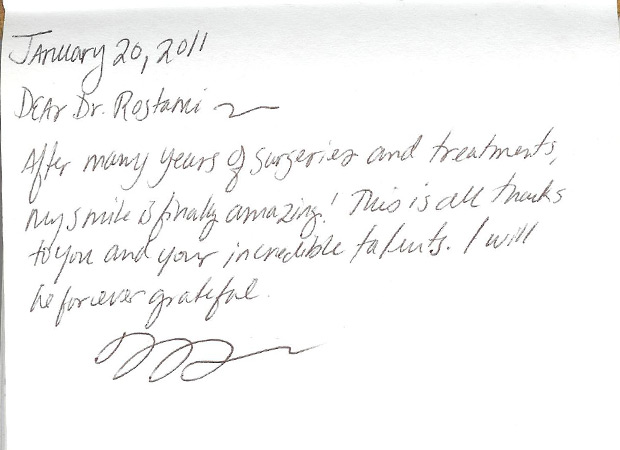 January 20, 2011
Dear Dr. Rostami
After many years of surgeries and treatments,
my smile is finally amazing! This is all thanks
to you and your incredible talents. I will
be forever grateful.